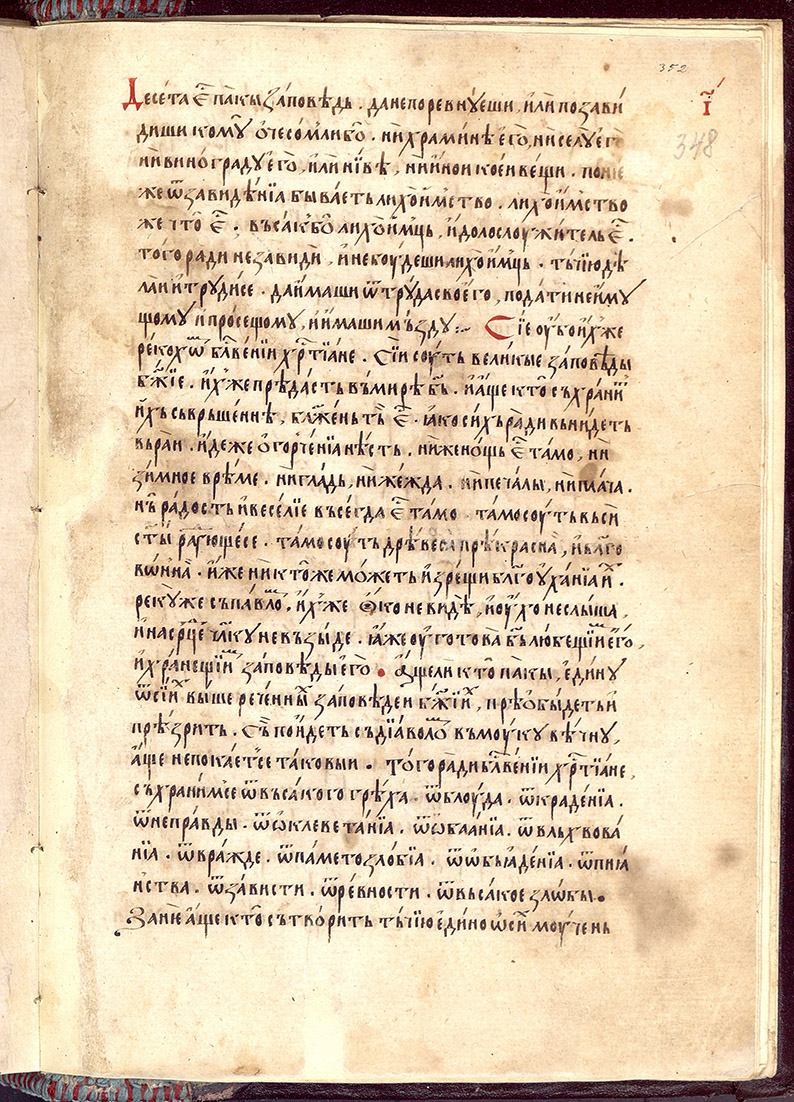 352
Десета є҃ пакы заповѣдь. да не поревнуеши, или позави
і҃
348
диши кому ѡ чесом либо. ни храминѣ его, ни селу его
ни винограду его, или нивѣ, ни инои коеи вещи. поне
же ѿ завидѣнїа бываеть лихоимство. лихоимство
же что є҃. въсак бо лихоимць, идолослоужитель є҃.
того ради не завиди, и не боудеши лихоимць. тъчїю дѣ
лаи и трудисе. да имаши ѿ труда своего, подати не иму
щому и просещому, и имаши мъзду:~ Сїе оубо ихже
рекохѡ бл҃гвенїи хр҃тїане. Сїи соуть великые заповѣды
бж҃їе. ихже прѣдасть въ мирѣ бъ҃. и аще кто съхранит
ихъ съвръшеннѣ, блаженьть є҃. ꙗко сихъ ради вънидеть
въ раи. идеже огорченїа нѣсть. ниже нощь є҃ тамо, ни
зимное врѣме. ни гладь, ни жежда. ни печалы, ни плача.
нъ радость и веселїе въсегда є҃ тамо. тамо соуть въси
ст҃ы радующесе. тамо соуть дрѣвеса прѣкрасна, и бл҃го
вонна. иже никтоже можеть изрещи бл҃гоуханїа и.
реку же съ павлѡ, ихже око не видѣ, и оухо не слыша,
и на ср҃це чл҃ку не възыде. ꙗже оуготова бъ҃ любещїим его,
и хранещїим заповѣды его. Ащели кто пакы, едину
ѿ сїих више реченных заповѣдеи бж҃їих, прѣобыдеть и
прѣзрить. Съ поидеть съ дїаволѡ въ моуку вѣчну,
аще не покаетсе таковыи. Того ради бл҃гвенїи хр҃тїане,
съхранимсе ѿ въсакого грѣха. ѿ блоуда. ѿ краденїа.
ѿ неправды. ѿ ѡклеветанїа. ѿ ѡбаанїа. ѿ влъхвова
нїа. ѿ вражде. ѿ паметозлобїа. ѿ ѡбъꙗденїа. ѿ пиꙗ
нства. ѿ зависти. ѿ ревности. ѿ въсакое злѡбы.
Зане аще кто сътворить тъчїю едино ѿ сїи моучень